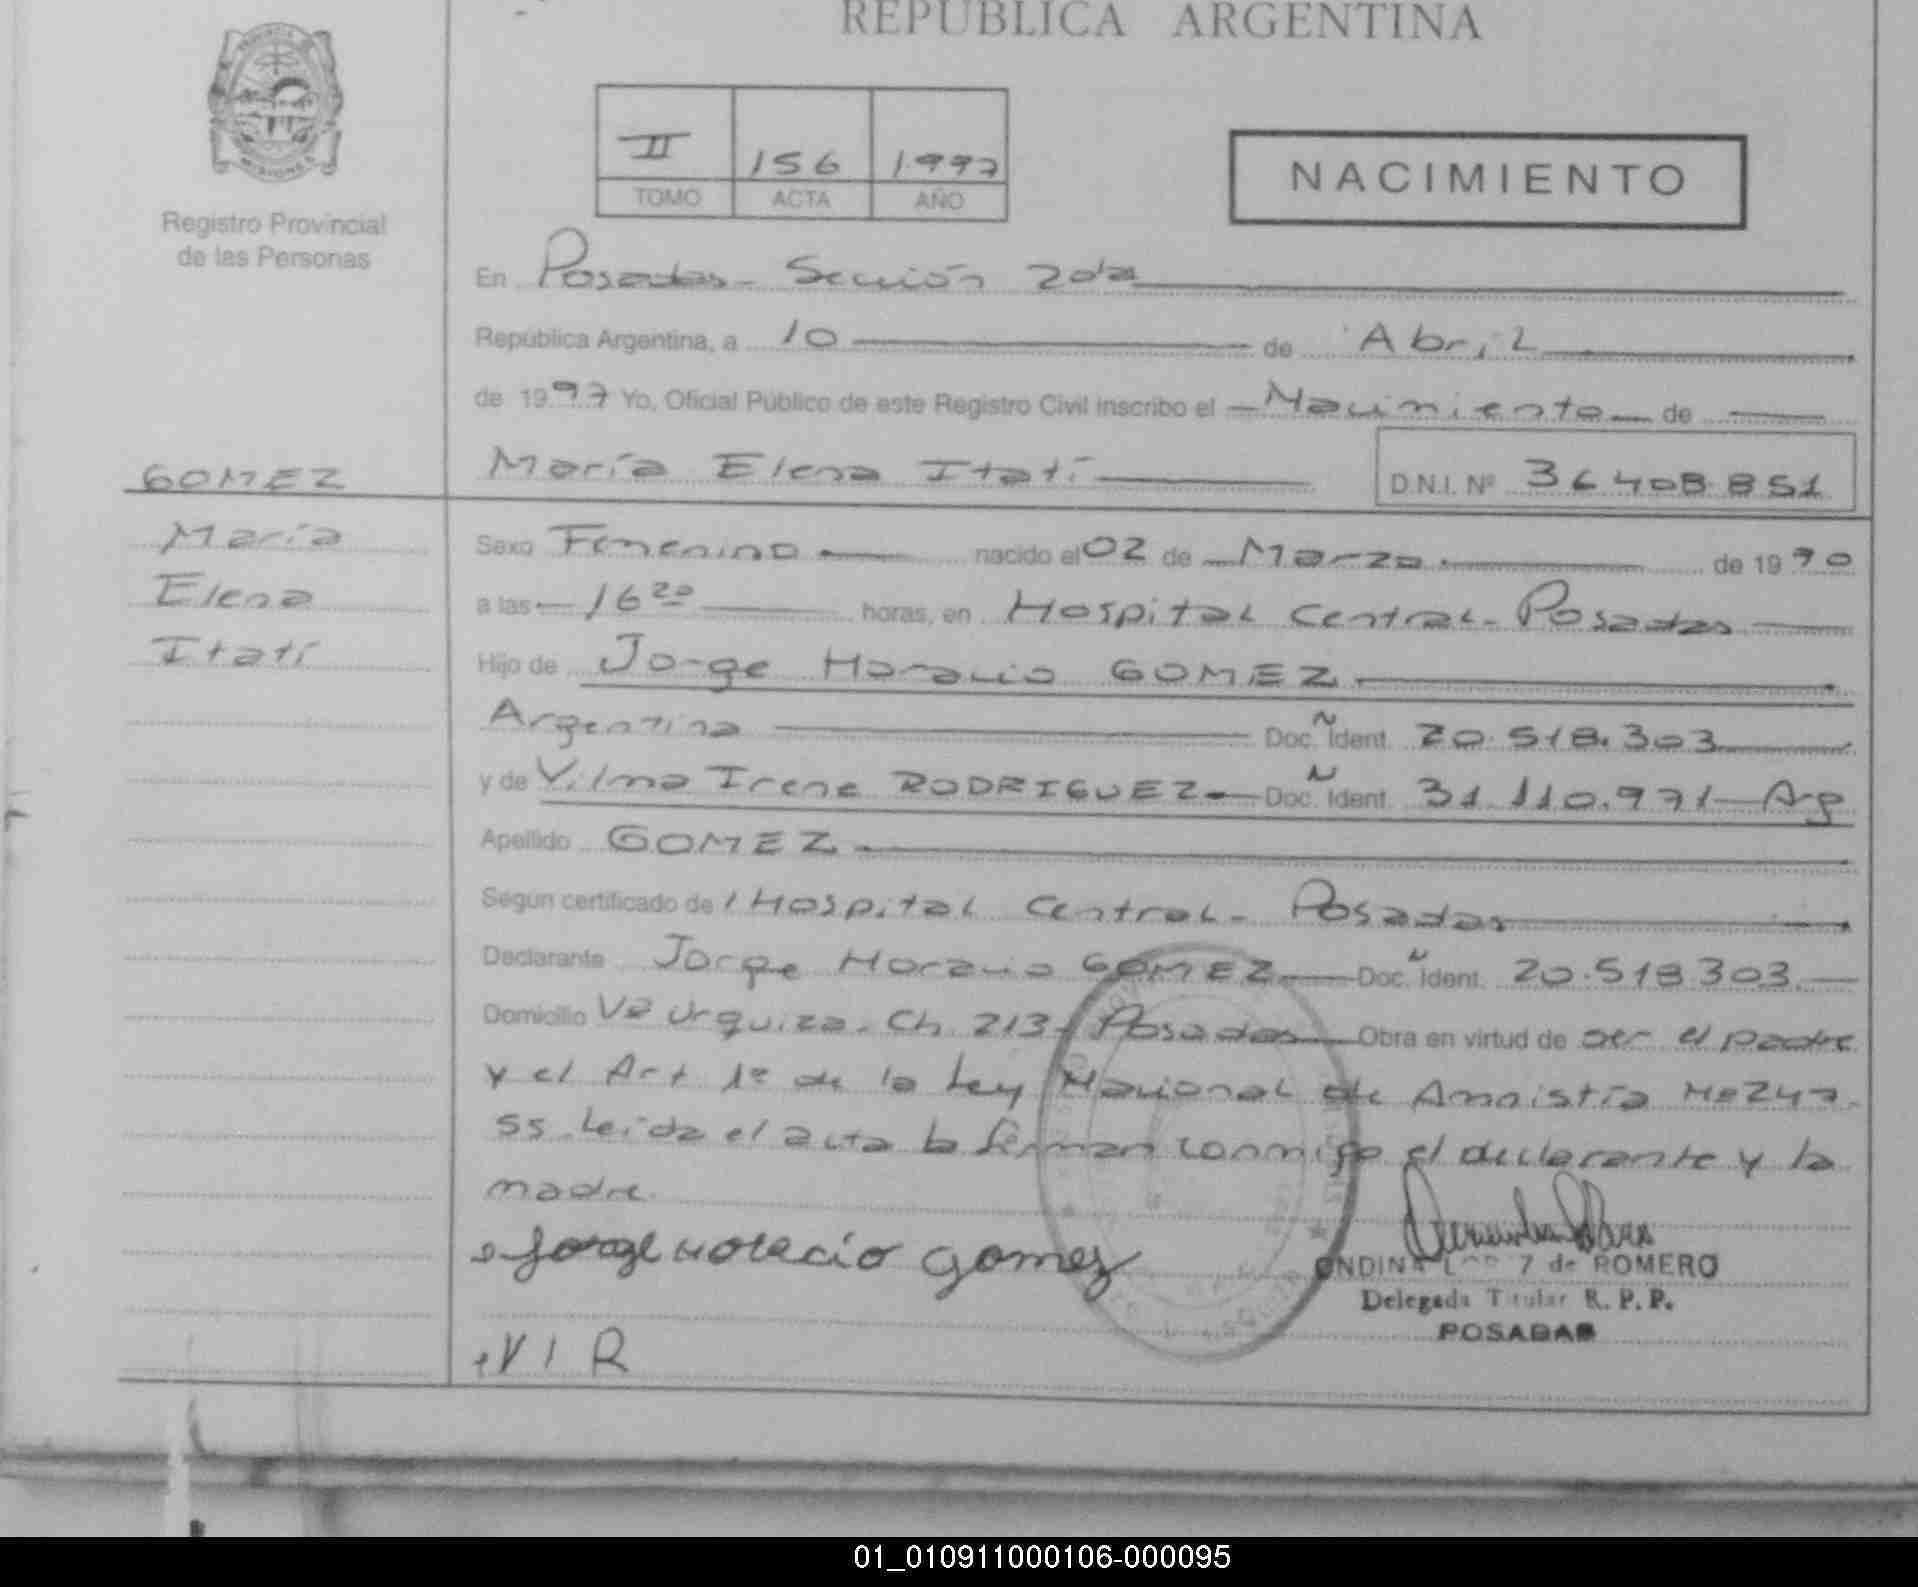 REPUBLICA ARGENTINA
PROVINCIA DE
MISIONES
Registro Provincial
de las Personas
II 156 1997
TOMO ACTA AÑO
NACIMIENTO
En Posadas - Sección 2da
República Argentina, a 10 de Abril
de 1997 Yo, Oficial Público de este Registro Civil inscribo el Nacimiento de
GOMEZ María Elena Itatí D.N.I. Nº 36.408.851
María Sexo Femenino nacido el 02 de Marzo de 1990
Elena a las 16 20 horas, en Hospital Central - Posadas
Itatí Hijo de Jorge Horacio GOMEZ
Argentina Doc. Ñ Ident. 20.518.303
y de Vilma Irene RODRIGUEZ Doc. Ñ Ident. 31.110.971 - Arg
Apellido GOMEZ
Según certificado de l Hospital Central - Posadas
Declarante Jorge Horacio GOMEZ Doc. Ñ Ident. 20.518.303
Domicilio Vª Urquiza - Ch. 213 - Posadas Obra en virtud de ser el padre
y el Art 1º de la Ley Nacional de Amnistía Nº 247
55. Leída el acta la firman conmigo el declarante y la
madre.
Jorge Horacio Gomez
ONDINA de ROMERO
Delegada Titular R. P. P.
POSADAS
V I R
01_010911000106-000095